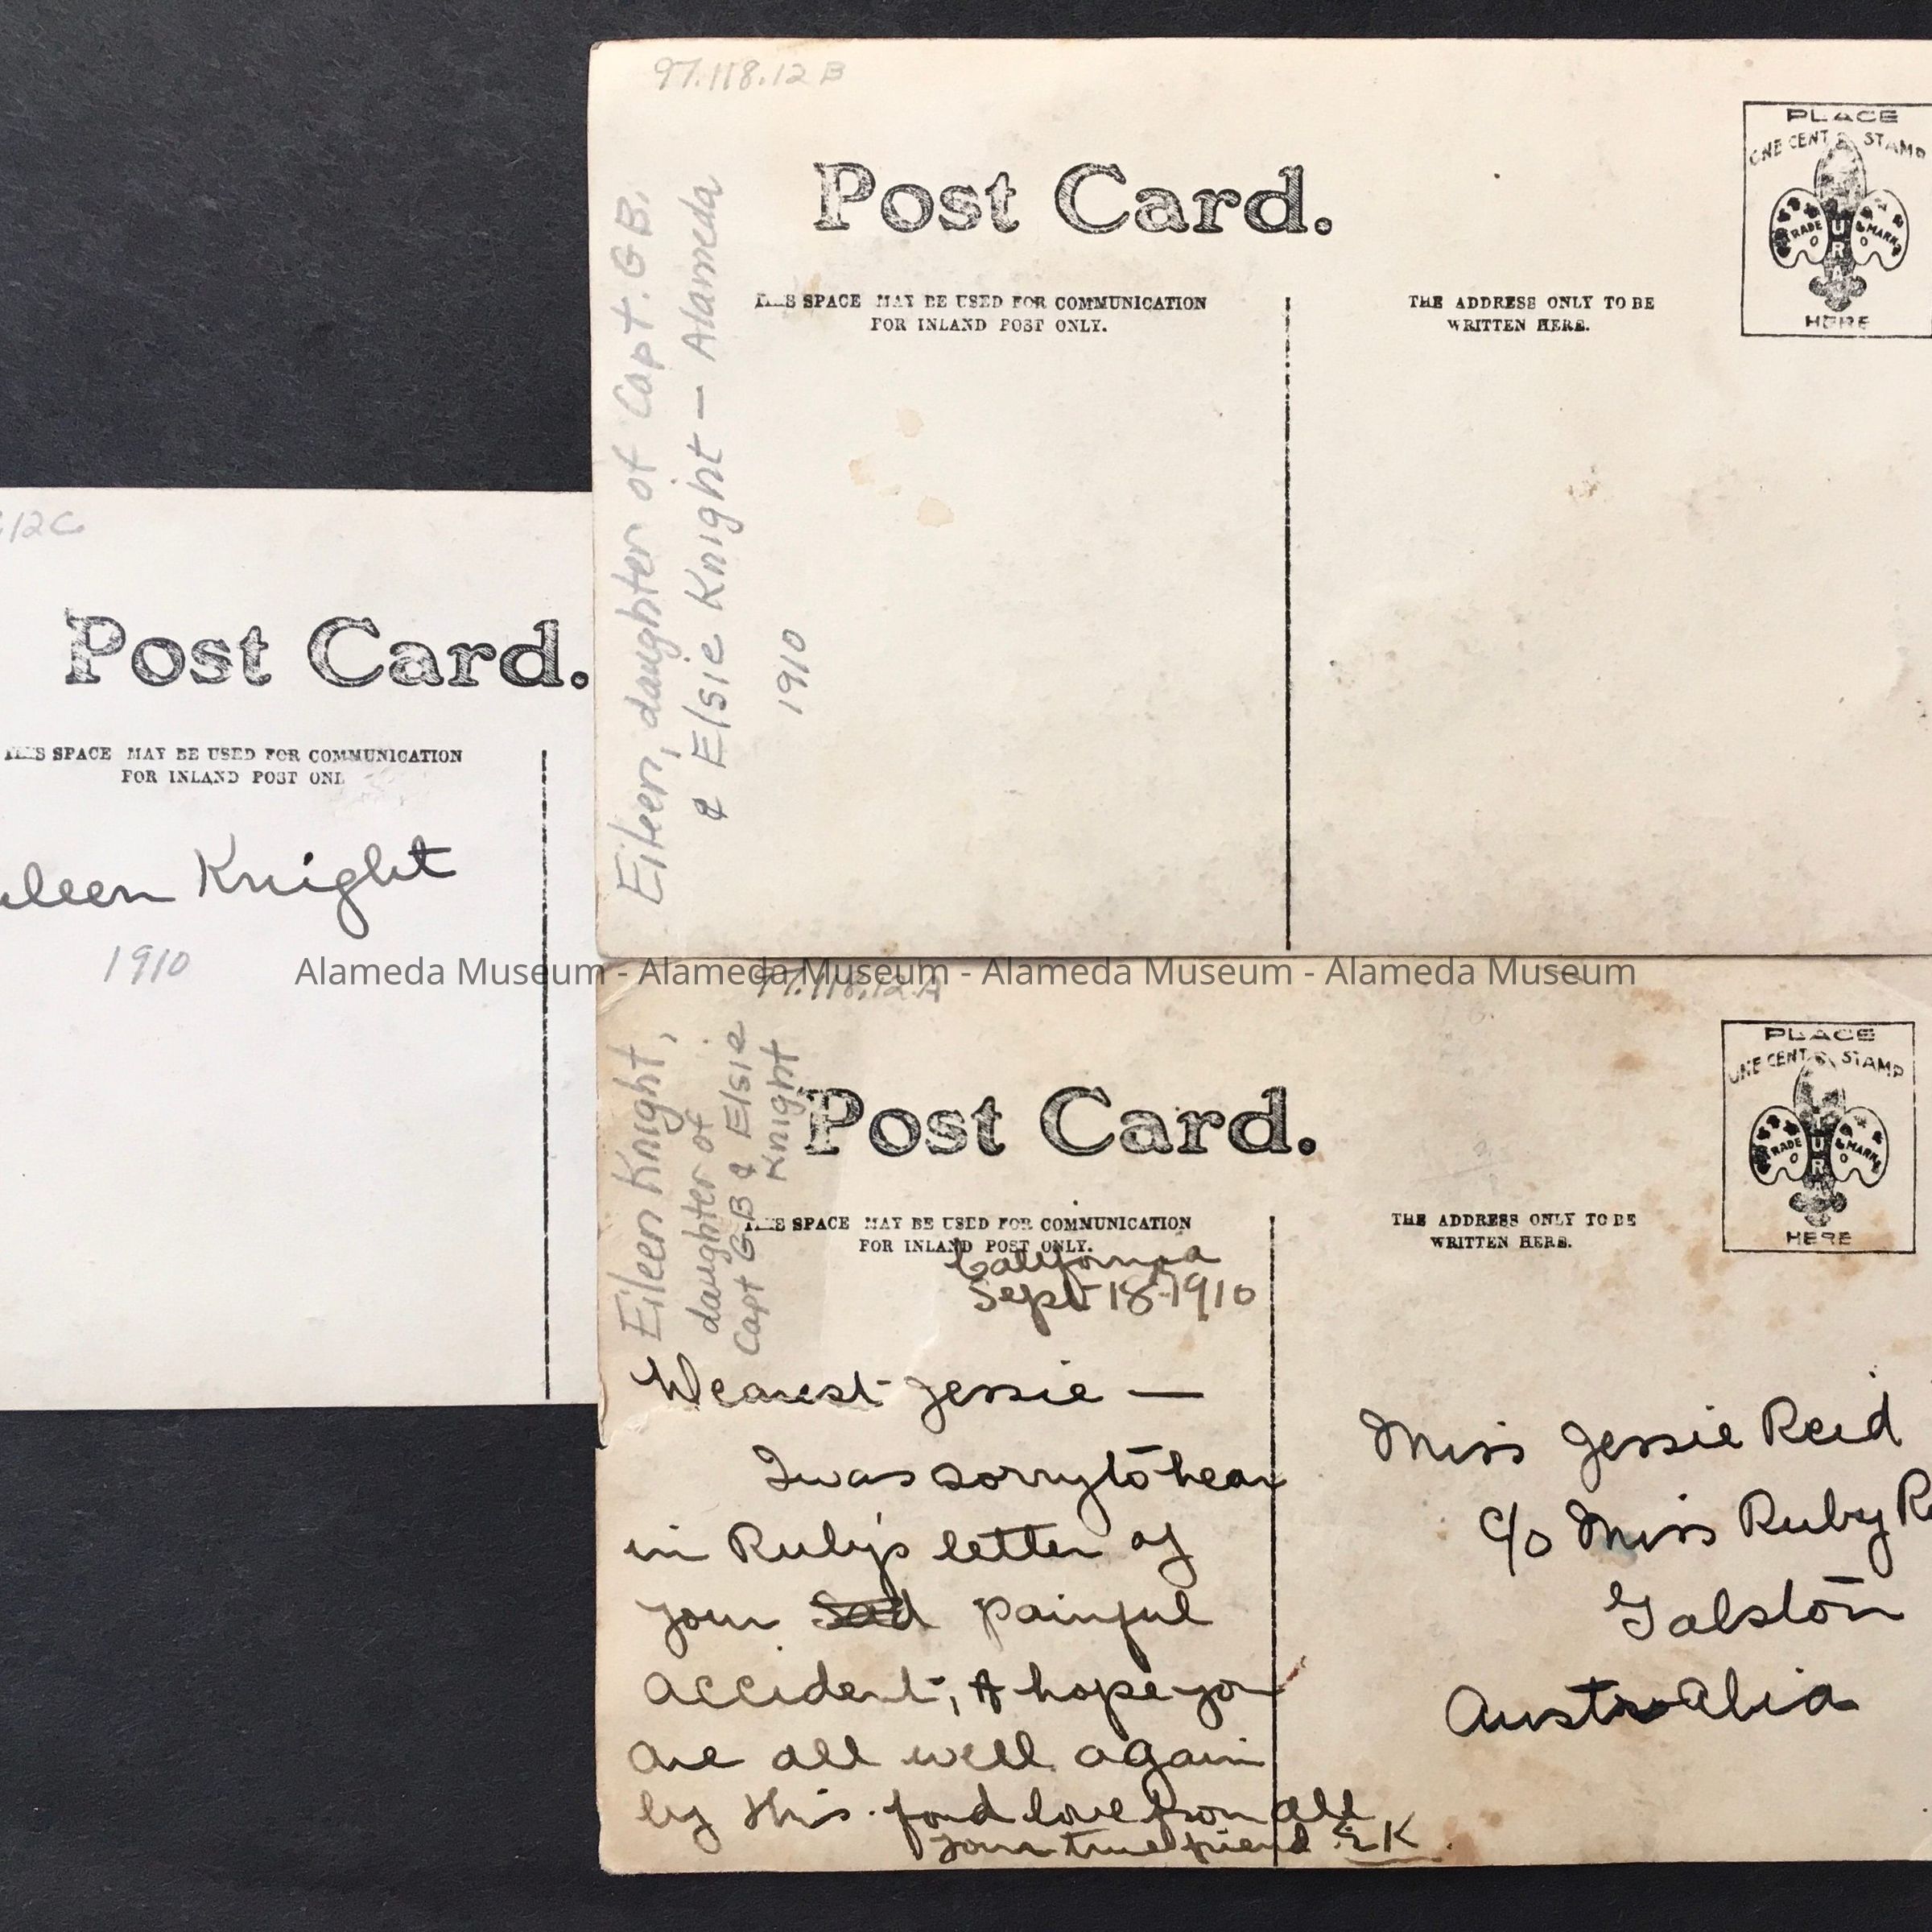 97.118.12 B
Post Card.
THIS SPACE MAY BE USED FOR COMMUNICATION
FOR INLAND POST ONLY.
THE ADDRESS ONLY TO BE
WRITTEN HERE.
PLACE
ONE CENT STAMP
TRADE MARK
HERE
Eileen, daughter of Capt. G B.
& Elsie Knight — Alameda
1910
12C
Post Card.
THIS SPACE MAY BE USED FOR COMMUNICATION
FOR INLAND POST ONL
ileen Knight
1910
Alameda Museum - Alameda Museum - Alameda Museum - Alameda Museum
97.118.12 A
Eileen Knight,
daughter of
Capt GB & Elsie
Knight
Post Card.
THIS SPACE MAY BE USED FOR COMMUNICATION
FOR INLAND POST ONLY.
THE ADDRESS ONLY TO BE
WRITTEN HERE.
PLACE
ONE CENT STAMP
TRADE MARK
HERE
California
Sept 18-1910
Dearest Jessie —
I was sorry to hear
in Ruby's letter of
your Sad painful
accident, & hope you
are all well again
by this. fond love from all
your true friend EK.
Miss Jessie Reid
c/o Miss Ruby R
Galston
Australia